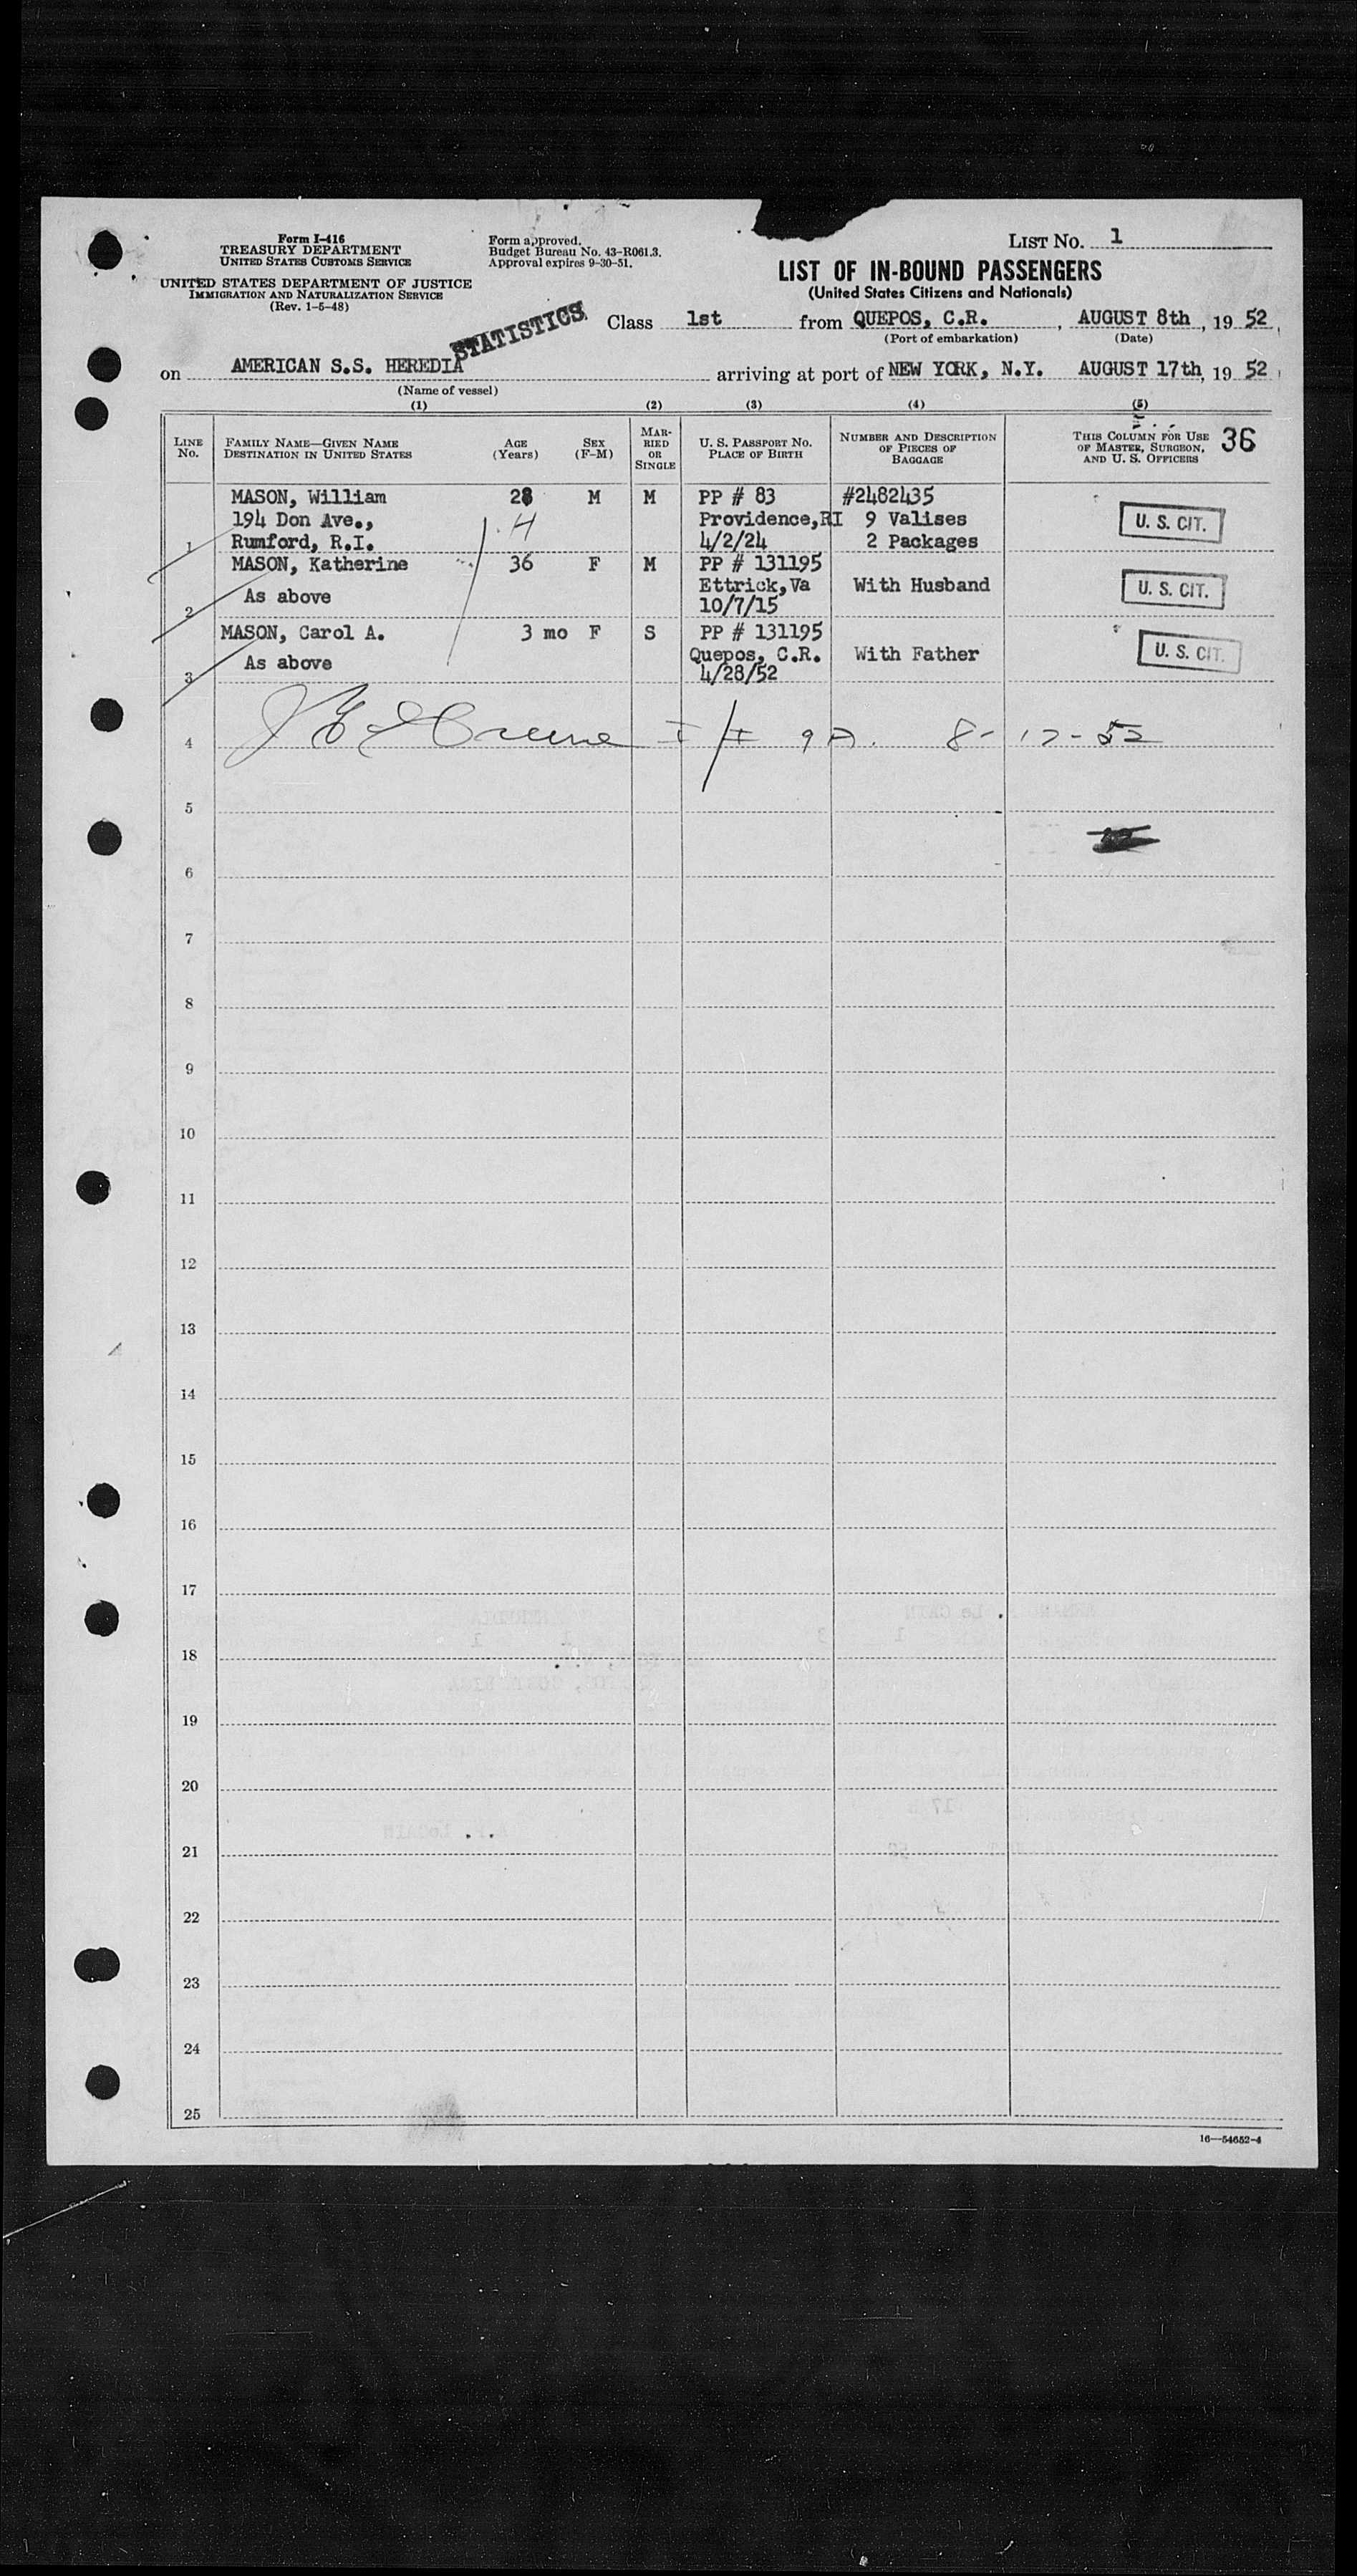 Form I-416
TREASURY DEPARTMENT
UNITED STATES CUSTOMS SERVICE
UNITED STATES DEPARTMENT OF JUSTICE
IMMIGRATION AND NATURALIZATION SERVICE
(Rev. 1-5-48)
Form approved.
Budget Bureau No. 43-R061.3.
Approval expires 9-30-51.
LIST NO. 1
LIST OF IN-BOUND PASSENGERS
(United States Citizens and Nationals)
STATISTICS
Class 1st from QUEPOS, C.R., AUGUST 8th, 19 52,
(Port of embarkation) (Date)
on AMERICAN S.S. HEREDIA arriving at port of NEW YORK, N.Y. AUGUST 17th, 19 52
(Name of vessel)
(1) (2) (3) (4) (5)
LINE NO. FAMILY NAME—GIVEN NAME DESTINATION IN UNITED STATES AGE (Years) SEX (F-M) MARRIED OR SINGLE U. S. PASSPORT NO. PLACE OF BIRTH NUMBER AND DESCRIPTION OF PIECES OF BAGGAGE THIS COLUMN FOR USE OF MASTER, SURGEON, AND U. S. OFFICERS 36
MASON, William 28 M M PP # 83 #2482435
194 Don Ave., H Providence,RI 9 Valises U. S. CIT.
1 Rumford, R.I. 4/2/24 2 Packages
MASON, Katherine 36 F M PP # 131195
As above Ettrick,Va With Husband U. S. CIT.
2 10/7/15
MASON, Carol A. 3 mo F S PP # 131195
As above Quepos, C.R. With Father U. S. CIT.
3 4/28/52
4 8-17-52
5
6
7
8
9
10
11
12
13
14
15
16
17
18
19
20
21
22
23
24
25
16—54652-4